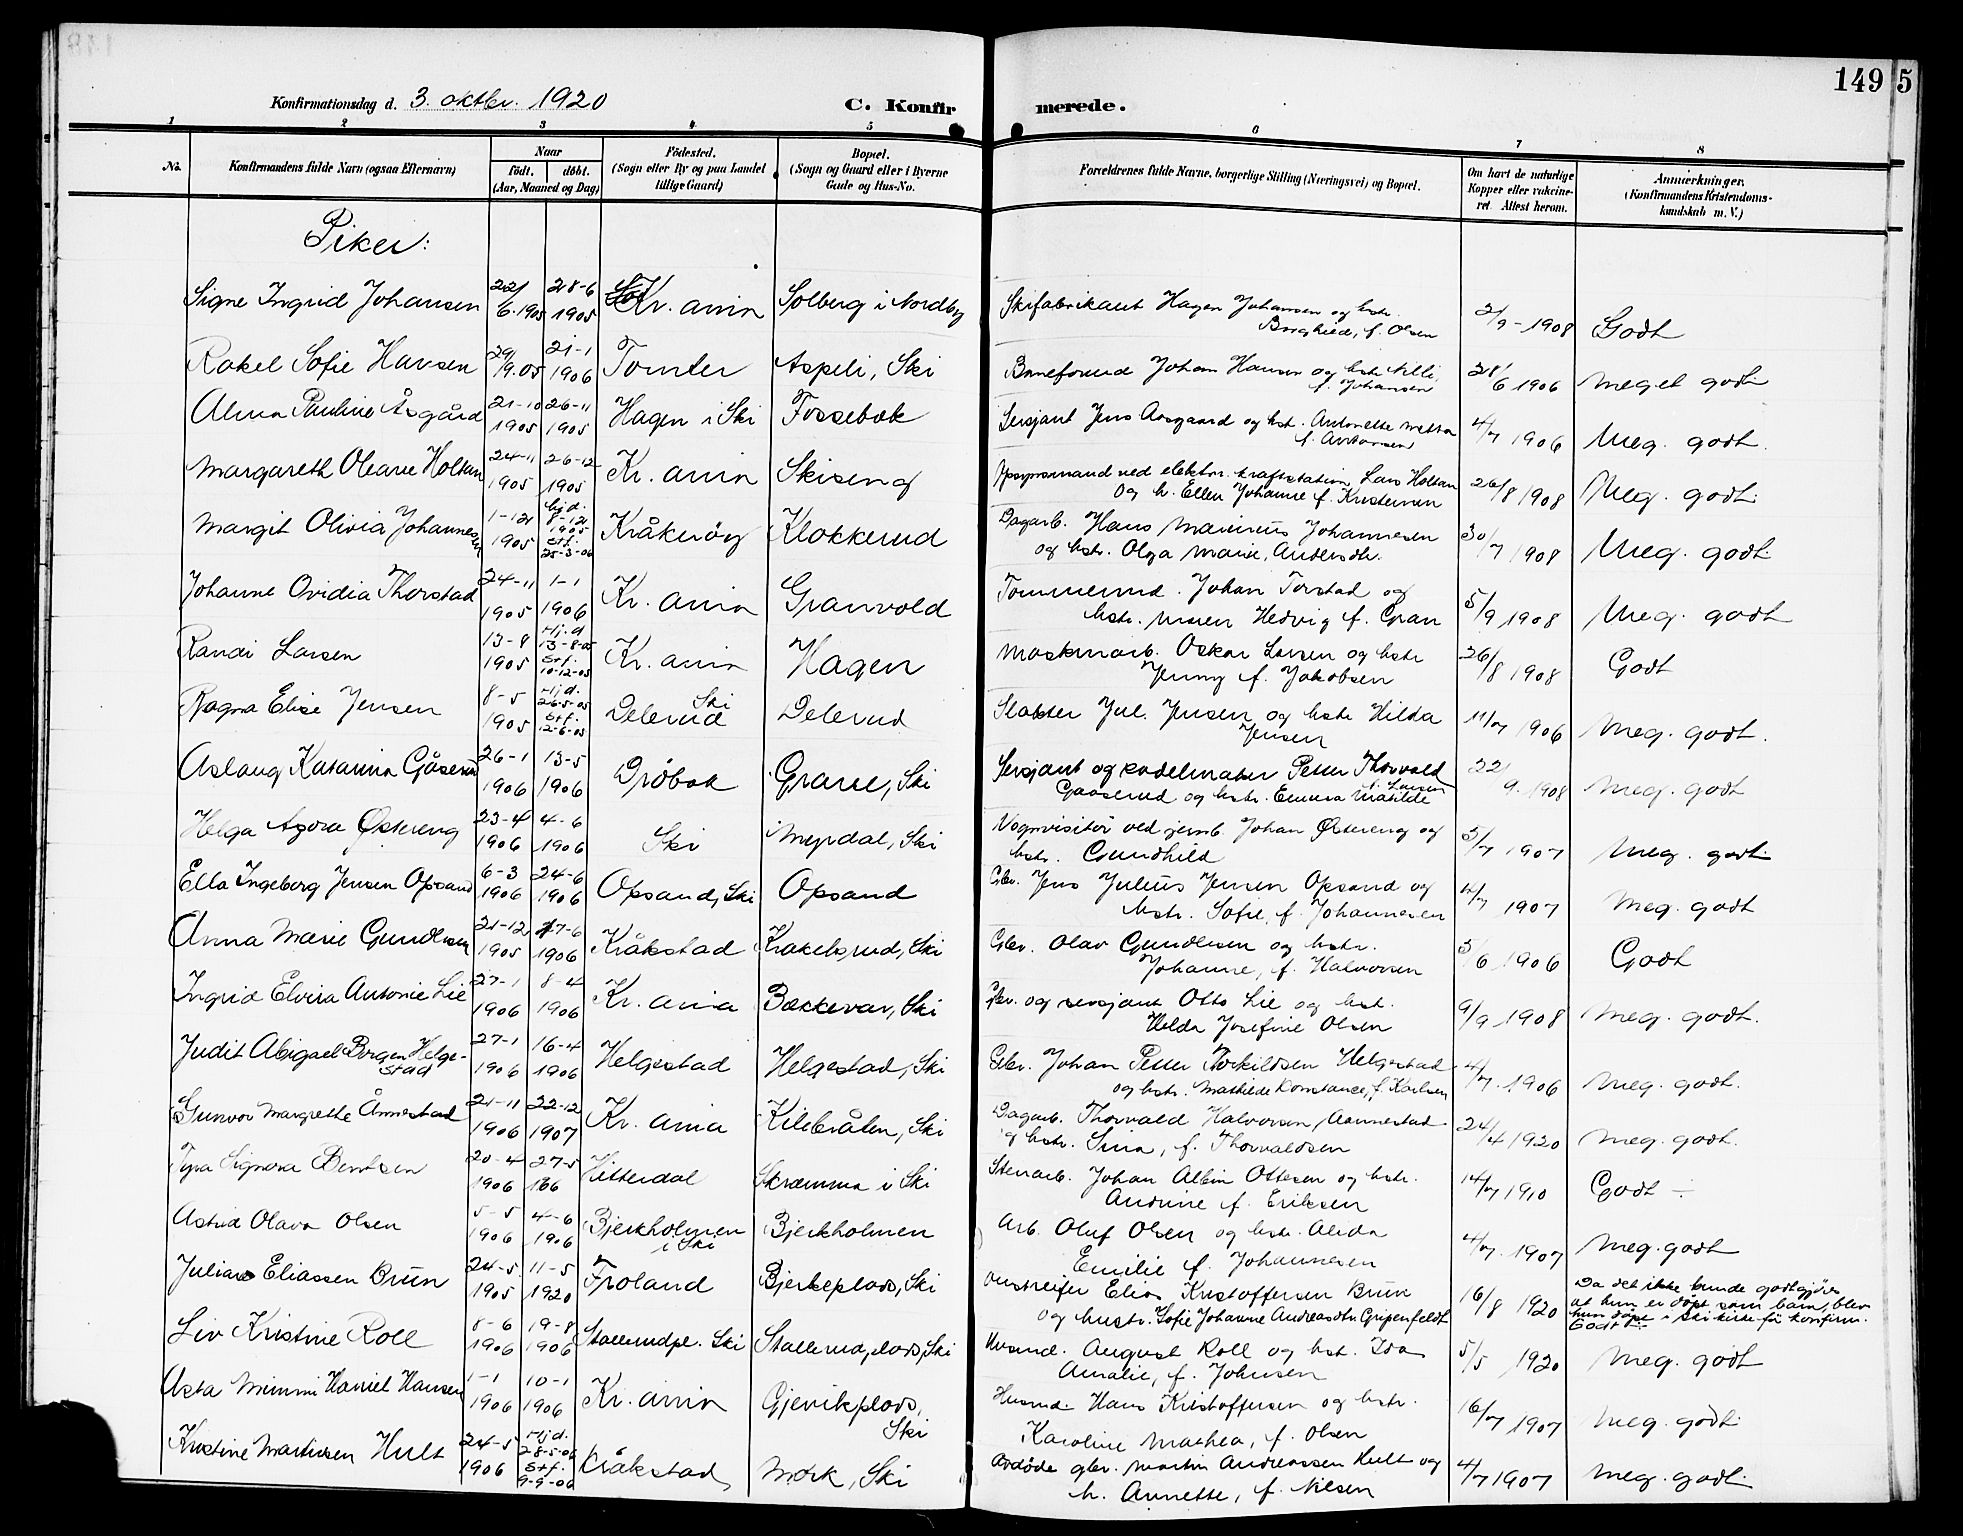 149
5
Konfirmationsdag d. 3. oktbr. 1920
C. Konfirmerede.
1 2 3 4 5 6 7 8
No.
Konfirmandens fulde Navn (ogsaa Efternavn)
Naar
födt. döbt.
(Aar, Maaned og Dag)
Födested.
(Sogn eller By og paa Landet
tillige Gaard)
Bopæl.
(Sogn og Gaard eller i Byerne
Gade og Hus-No.
Forældrenes fulde Navne, borgerlige Stilling (Næringsvei) og Bopæl.
Om havt de naturlige
Kopper eller vakcine-
ret. Attest herom.
Anmærkninger.
(Konfirmandens Kristendoms-
kundskab m. V.)
Piker:
Signe Ingrid Johansen 22/6. 1905 28-6 1905 Kr.ania Solberg i Nordby Skifabrikant Hagen Johansen og hstr. Borghild, f. Olsen 2/9-1908 Godt
Rakel Sofie Hansen 29/9.05 21-1 1906 Tomter Aspeli, Ski Baneformd Johan Hansen og hstr. Milli f. Johansen 28/6 1906 meget godt
Alma Pauline Åsgård 21-10 1905 26-11 1905 Hagen i Ski Fossebæk Sersjant Jens Aasgaard og hst. Antonette f. Antonsen 4/7 1906 Meg. godt.
Margareth Oleane Holtan 24-11 1905 26-12 1905 Kr.ania Skiseng ved elektr. kraftstation Lars Holtan og h. Ellen Johanne f. Kristensen 26/8 1908 Meg. godt.
Margit Olivia Johannesen 1-12 1905 hjd. 8-12 1905 stf. 25-3-06 Kråkerøy Klokkerud Dagarb. Hans Marinius Johannesen og hstr. Olga Marie, Andersdtr. 30/7 1908 Meg. godt.
Johanne Ovidia Thorstad 24-11 1905 1-1 1906 Kr.ania Granvold Tømmermd. Johan Torstad og hstr. Maren Hedvig f. Gran 5/9 1908 Meg. godt
Randi Larsen 13-8 1905 Hj.d. 13-8-05 Stf. 10-12-05 Kr.ania Hagen Maskinarb. Oskar Larsen og hstr Jenny f. Jakobsen 26/8 1908 Godt
Ragna Elise Jensen 8-5 1905 Hj.d. 26-5-05 Stf. 12-6-05 Delerud Ski Delerud Slakter Jul. Jensen og hstr Hilda Jensen 11/7 1906 Meg. godt.
Aslaug Katarina Gåserud 26-1 1906 13-5 1906 Drøbak Grane, Ski Sersjant og sadelmaker Petter Thorvald Gaaserud og hstr. Emma Matilde f. Larsen 22/9. 1908 Meg. godt
Helga Agora Østereng 23-4 1906 4-6 1906 Ski Myrdal, Ski Vognvisitør ved jernb. Johan Østereng og hstr. Gundhild 5/7 1907 Meg. godt.
Ella Ingeborg Jensen Opsand 6-3 1906 24-6 1906 Opsand, Ski Opsand Gbr. Jens Julius Jensen Opsand og hstr. Sofie, f. Johannesen 4/7 1907 Meg. godt
Anna Marie Gundersen 21-12 1905 17-6 1906 Kråkstad Krakelsrud, Ski Gbr. Olav Gundersen og hstr. Johanne, f. Halvorsen 5/6 1906 Godt
Ingrid Elvira Antonie Lie 27-1 1906 8-4 1906 Kr.ania Bækkevar, Ski Gbr. og sersjant Otto Lie og hst. Hilda Josefine Olsen 9/9 1908 Meg. godt.
Judit Abigael Borgen Helgestad 27-1 1906 16-4 1906 Helgestad Helgestad, Ski Gbr. Johan Petter Torkildsen Helgestad og hstr. Mathilde Konstance, f. Karlsen 4/7. 1906 Meg. godt.
Gunvor Margrethe Ånnestad 21-11 1906 22-12 1907 Kr.ania Kilebråten, Ski Dagarb. Thorvald Halvorsen, Aannestad og hstr. Sina, f. Thorvaldsen 24/4 1920 Meg. godt.
Tyra Signora Berntsen 20-4 1906 27-5 Hitterdal Skræmma i Ski Stenarb. Johan Albin Ottesen og hstr. Andrine f. Eriksen 14/7 1910 Godt
Astrid Olava Olsen 5-5 1906 4-6 1906 Bjerkholmen i Ski Bjerkholmen Arb. Oluf Olsen og hstr. Alida Emilie f. Johannesen 4/7. 1907 Meg. godt
Juliane Eliassen Brun 24-5. 1905 11-5 1920 Froland Bjerkeplads, Ski Omstreifer Elias Kristoffersen Brun og hustr. Sofie Johanne Andreasdtr. Gripenfeldt 16/8 1920 Da det ikke kunde godtgjøres at hun er döpt som barn, blev hun döpt i Ski kirke før konfirm. Godt
Liv Kristine Roll 8-6 1906 19-8 1906 Stallerudpl. Ski Stallerudplads, Ski Husmd. August Roll og hst. Ida Amalie, f. Johnsen 5/5 1920 Meg. godt
Asta Mimmi Harriet Hansen 1-1 1906 10-1 1906 Kr.ania Gjevikplads, Ski Husmd. Hans Kristoffersen og hstr. Karoline Mathea, f. Olsen 16/7 1907 Meg. godt.
Kristine Martinsen Hult 24-5 1906 Hjd. 28-5-06 Stf. 9-9-06 Kråkstad Mørk, Ski Avdøde gbr. Martin Andreassen Hult og h. Annette, f. Nilsen 4/7 1907 Meg. godt.